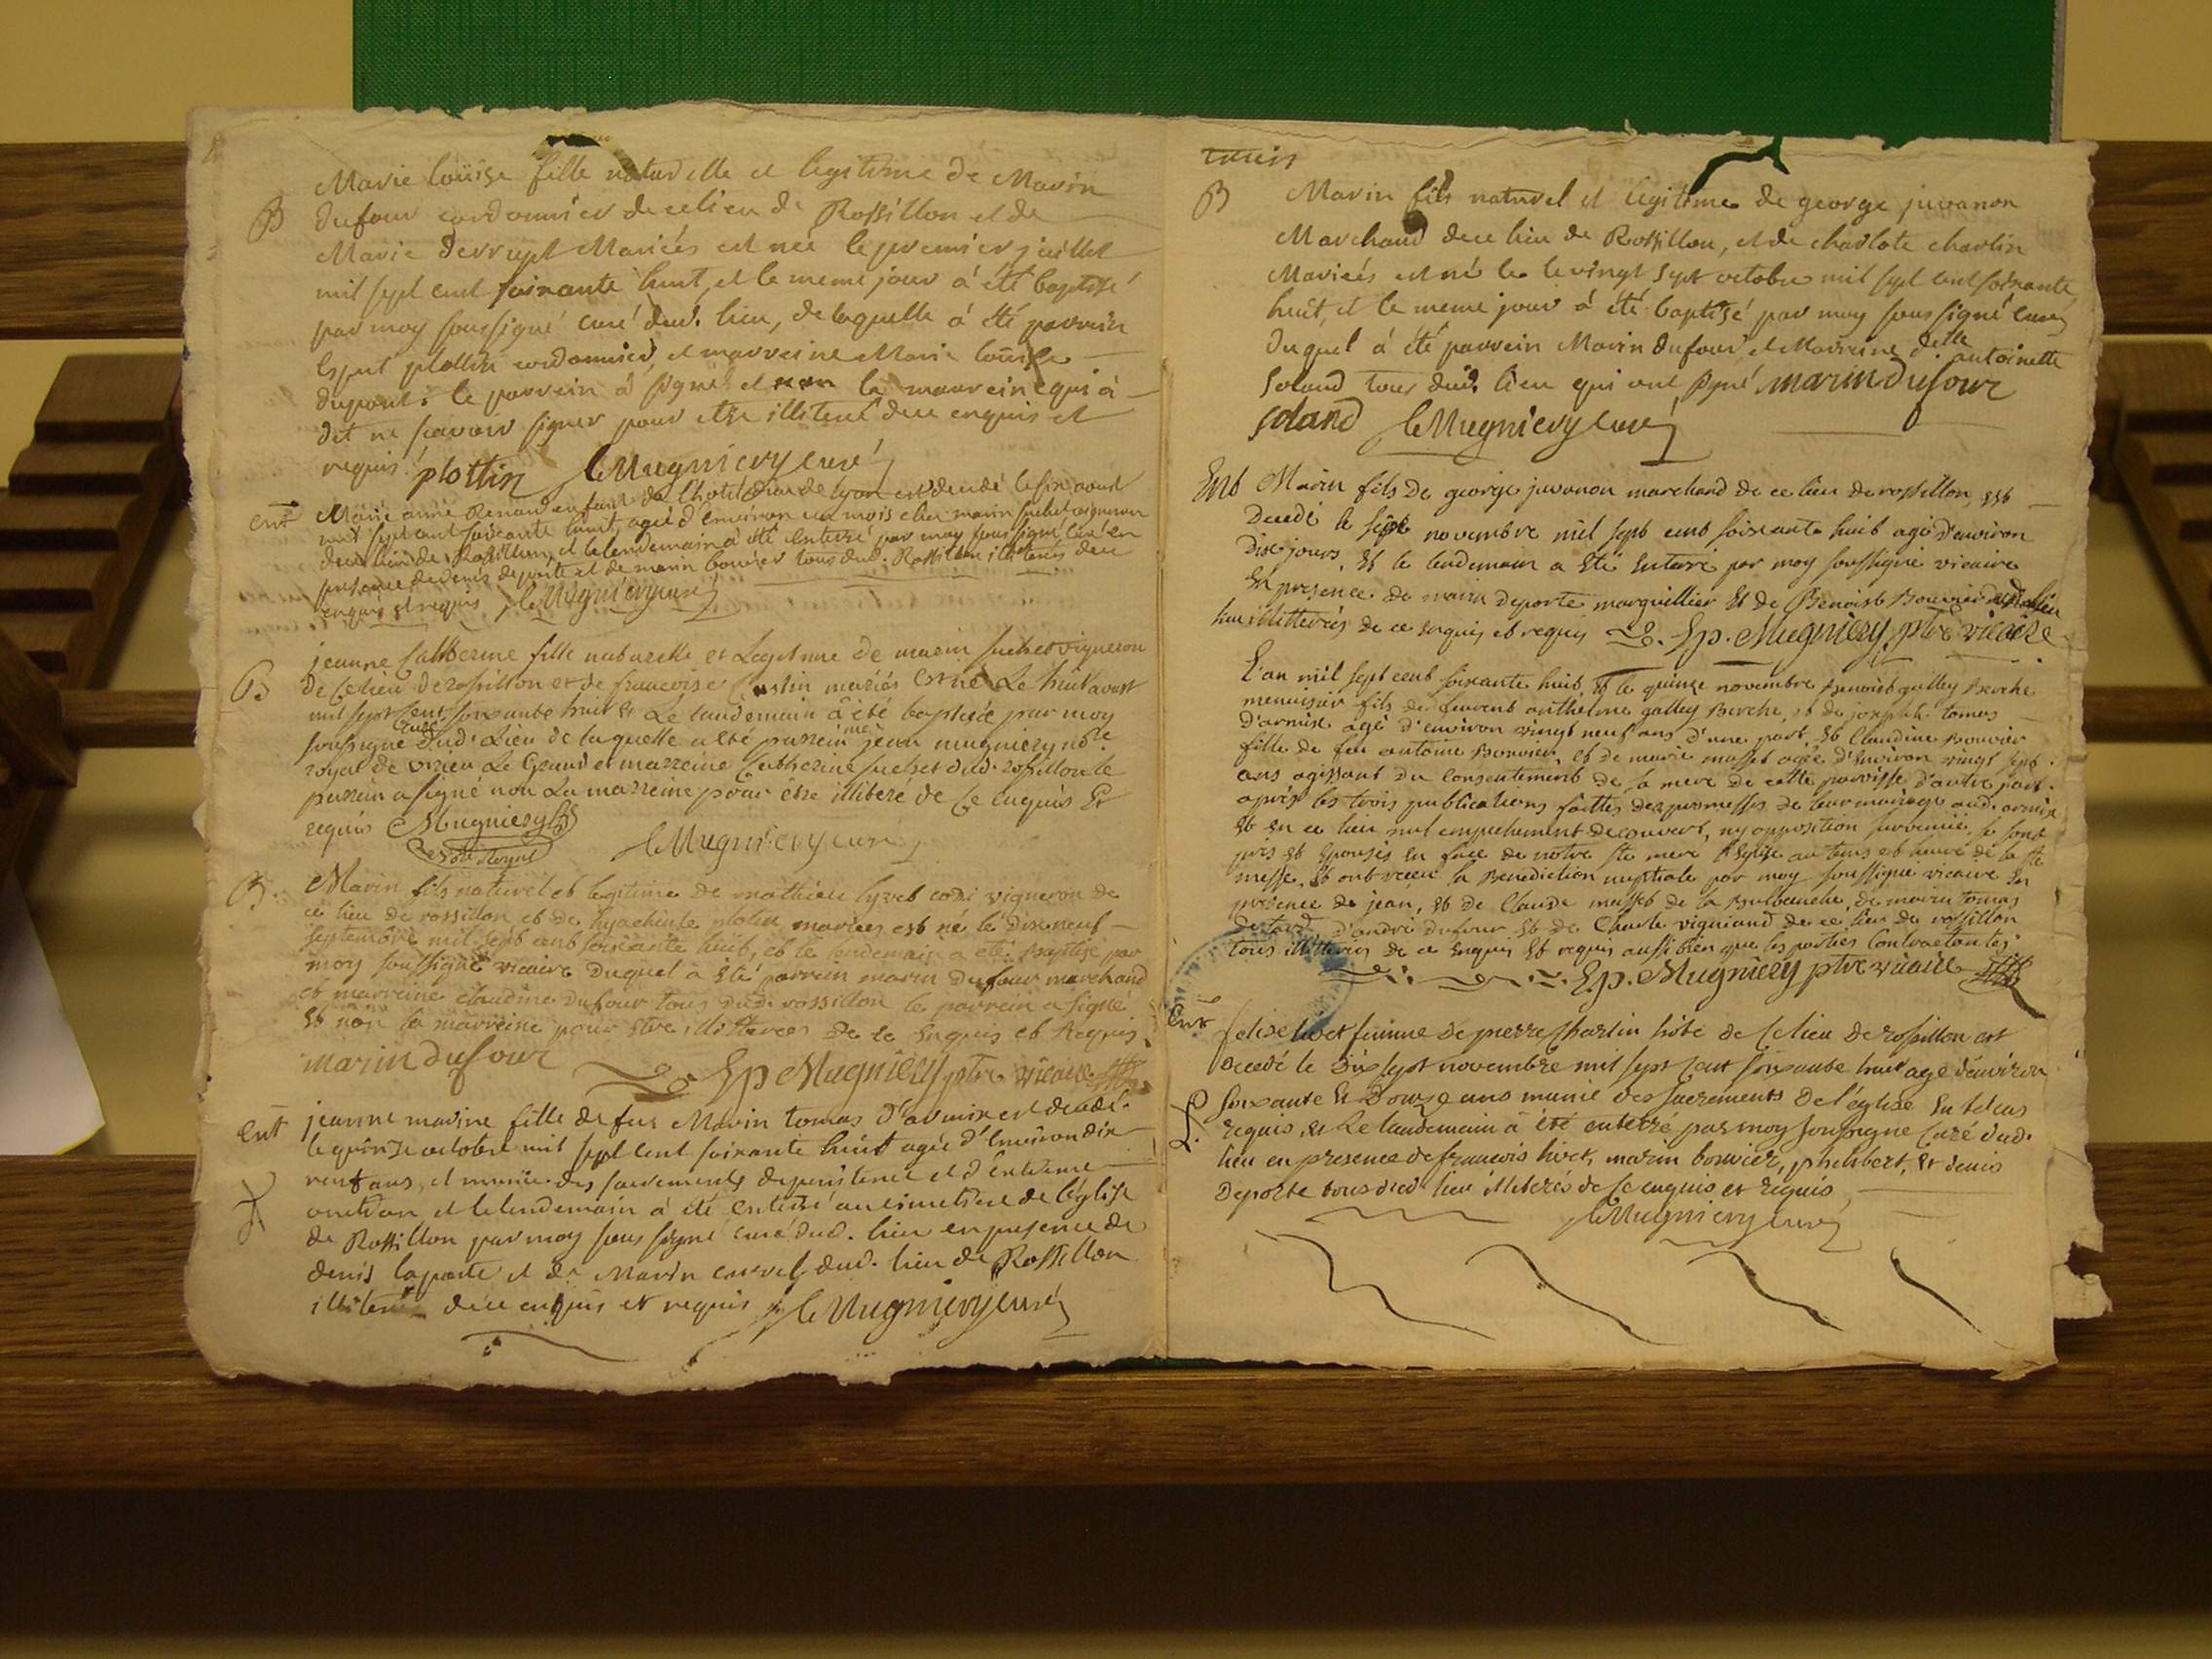 B
Marie loüise fille naturelle et legitime de Marin
dufour cordonnier de ce lieu de Rossillon et de
Marie Derrupt Mariés est née le premier juillet
mil sept cent soixante huit, et le meme jour à été baptisé
par moy soussigné curé dud. lieu, de laquelle à été parrein
Esprit plottin cordonnier, et marreine Marie loüise
dupont: le parrein à signé et non la marreine qui à
dit ne scavoir signer pour etre illiteré de ce enquis et
requis. plottin Mugniery curé
Ent
Marie anne Renaud enfant de l'hotel dieu de lyon est decedé le six aout
mil sept cent soixante huit, agé d'environ un mois chez marin suchet vigneron
de ce lieu de Rossillon, et le lendemain à été enterré par moy soussigné curé en
presence de denis deporte et de marin bouvier tous dud. Rossillon illiterés de ce
enquis et requis Mugniery curé
B
jeanne Catherine fille naturelle et Legitime de marin suchet vigneron
de Ce lieu de rossillon et de francoise mariés est né Le huit aoust
mil sept Cent soixante huit et Le landemain à été baptisée par moy
soussigné Curé dud. Lieu de laquelle a été parrein me jean mugniery nore
royal de virieu Le Grand et marreine Catherine suchet dud. rossillon le
parrein a signé non La marreine pour être illiteré de Ce enquis Et
requis Mugniery
Nore Royal Mugniery curé
B.
Marin fils naturel et legitime de mathieu vigneron de
ce lieu de rossillon et de hyacinte plotin mariées est né le dixneuf
septembre mil sept cent soixante huit, et le lendemain a été baptisé par
moy soussigné vicaire duquel à été parrein marin dufour marchand
et marreine claudine dufour tous dud. rossillon le parrein a signé
et non la marreine pour etre illitterées de ce enquis et Requis.
marin dufour Ep Mugniery ptre vicaire
Ent
jeanne marine fille de feu Marin tomas d'armix est decedé
le quinze octobre mil sept cent soixante huit agée d'environ dix
neuf ans, et munie des sacrements de penitence et d'extreme
onction et le lendemain à été enterré au cimetiere de l'église
de Rossillon par moy sous signé curé dud. lieu en presence de
denis laporte et de Marin dud. lieu de Rossillon
illiterés de ce enquis et requis Mugniery curé
B
Marin fils naturel et legitime de george juvanon
Marchand de ce lieu de Rossillon, et de charlote charlin
Mariés est né le le vingt sept octobre mil sept cent soixante
huit, et le meme jour à été baptisé par moy sous signé curé
duquel à été parrein Marin dufour, et Marreine delle antoinette
soland tous dud. lieu qui ont signé marin dufour
soland Mugniery curé
Ent
Marin fils de george juvanon marchand de ce lieu de rossillon, est
decedé le sept novembre mil sept cent soixante huit agé d'environ
dix jours, et le lendemain a été enterré par moy soussigné vicaire
en presence de marin deporte marguillier et de Benoist Bouvier
illitterés de ce enquis et requis Ep. Mugniery, ptre vicaire
L'an mil sept cent soixante huit, et le quinze novembre benoist galley berche
menuisier fils de laurent anthelme galley berche, et de tomas
d'armix agé d'environ vingt neuf ans d'une part, et Claudine bouvier
fille de feu antoine bouvier, et de marie masset agée d'environ vingt sept
ans agissant du consentement de sa mere de cette paroisse d'autre part.
après les trois publications faittes des promesses de leur mariage aud. armix
et en ce lieu nul empechement decouvert, ny opposition survenüe, se sont
pris et epousés en face de notre ste mere l'Eglise au tems et heure de la ste
messe, et ont receu la Benediction nuptiale par moy soussigné vicaire en
présence de jean, et de Claude masset de la burbanche, de marin tomas
d'andré dufour et de Charle vigniaud de ce lieu de rossillon
tous illitterés de ce enquis et requis aussi bien que les parties Contractantes
Ep. Mugniery ptre vicaire
Ent
femme de pierre Charlin hôte de Ce lieu de rossillon est
decedé le Dix sept novembre mil sept Cent soixante huit agé d'environ
soixante et Douze ans munie des sacrements de l'église en tel cas
requis et Le landemain à été enterré par moy soussigné Curé dud.
lieu en presence de francois hivet, marin bouvier, philibert, Et denis
Deporte tous dud. lieu illiterés de Ce enquis et requis
Mugniery curé